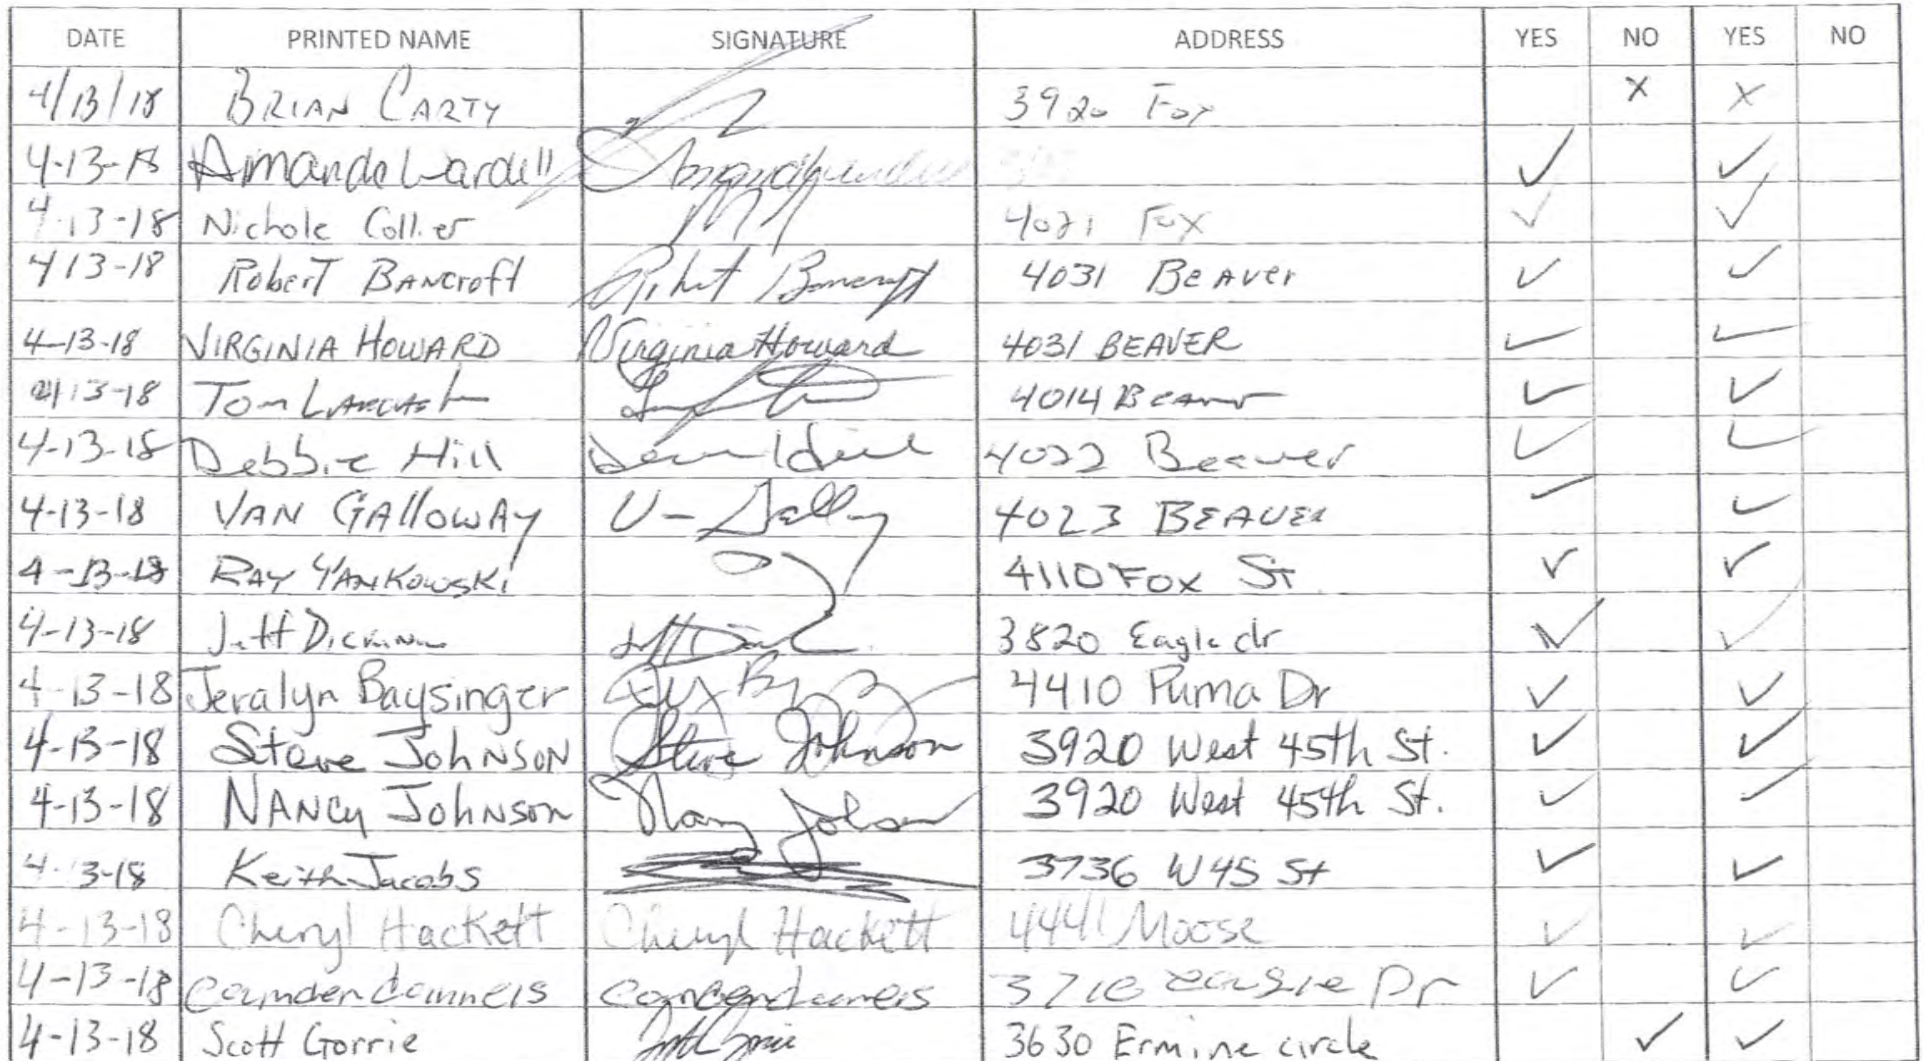 DATE PRINTED NAME SIGNATURE ADDRESS YES NO YES NO
4/13/18 BRIAN CARTY 3920 Fox X X
4-13-18 Amanda Wardell ✓ ✓
4-13-18 Nichole Collier 4021 Fox ✓ ✓
413-18 Robert BANcroft Robert Bancroft 4031 BeAver ✓ ✓
4-13-18 VIRGINIA HOWARD Virginia Howard 4031 BEAVER ✓ ✓
4/13-18 Tom 4014 Beaver ✓ ✓
4-13-18 Debbie Hill 4022 Beaver ✓ ✓
4-13-18 VAN GAlloWAy 4023 BEAVER ✓ ✓
4-13-18 RAY YANKOWSKi 4110 FOX ST ✓ ✓
4-13-18 Jeff 3820 Eagle dr ✓ ✓
4-13-18 Jeralyn Baysinger 4410 Puma Dr ✓ ✓
4-13-18 Steve JohNSON Steve Johnson 3920 West 45th St. ✓ ✓
4-13-18 NANCy JohNSON Nancy Johnson 3920 West 45th St. ✓ ✓
4-13-18 Keith Jacobs 3736 W 45 St ✓ ✓
4-13-18 Cheryl Hackett Cheryl Hackett 4441 Moose ✓ ✓
4-13-18 Camden 3710 eagle Dr ✓ ✓
4-13-18 Scott Gorrie 3630 Ermine circle ✓ ✓